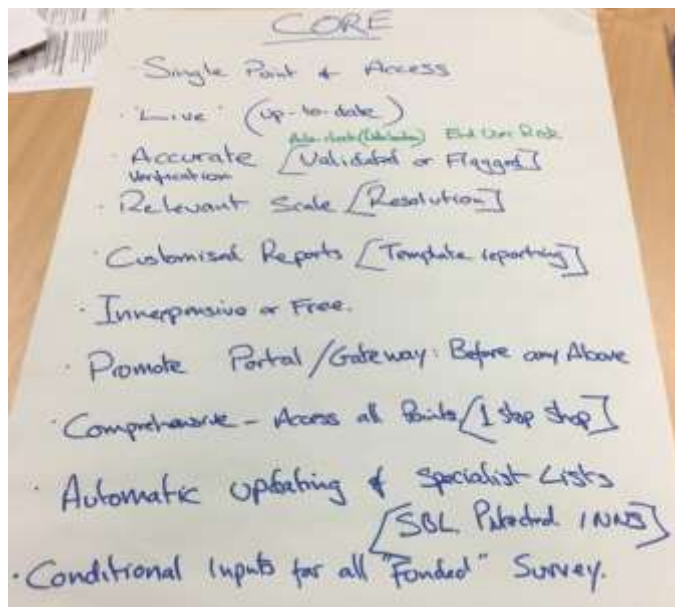 CORE
· Single Point of Access
· "Live" (up-to-date)
End User Risk
· Accurate [Validated or Flagged]
Verification
· Relevant Scale [Resolution]
· Customised Reports [Template reporting]
· Innexpensive or Free.
· Promote Portal/Gateway: Before any Above
· Comprehensive - Access all Points [1 stop shop]
· Automatic updating of Specialist Lists
[SBL. Protected INNS]
· Conditional inputs for all "Funded" Survey.